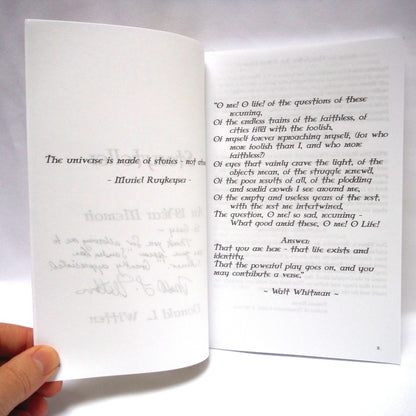 The universe is made of stories - not
- Muriel Ruykeyser -
"O me! O life! of the questions of these
recurring,
Of the endless trains of the faithless, of
cities fill'd with the foolish,
Of myself forever reproaching myself, (for who
more foolish than I, and who more
faithless?)
Of eyes that vainly crave the light, of the
objects mean, of the struggle renew'd,
Of the poor results of all, of the plodding
and sordid crowds I see around me,
Of the empty and useless years of the rest,
with the rest me intertwined,
The question, O me! so sad, recurring -
What good amid these, O me! O Life!
Answer:
That you are here - that life exists and
identity,
That the powerful play goes on, and you
may contribute a verse."
- Walt Whitman -